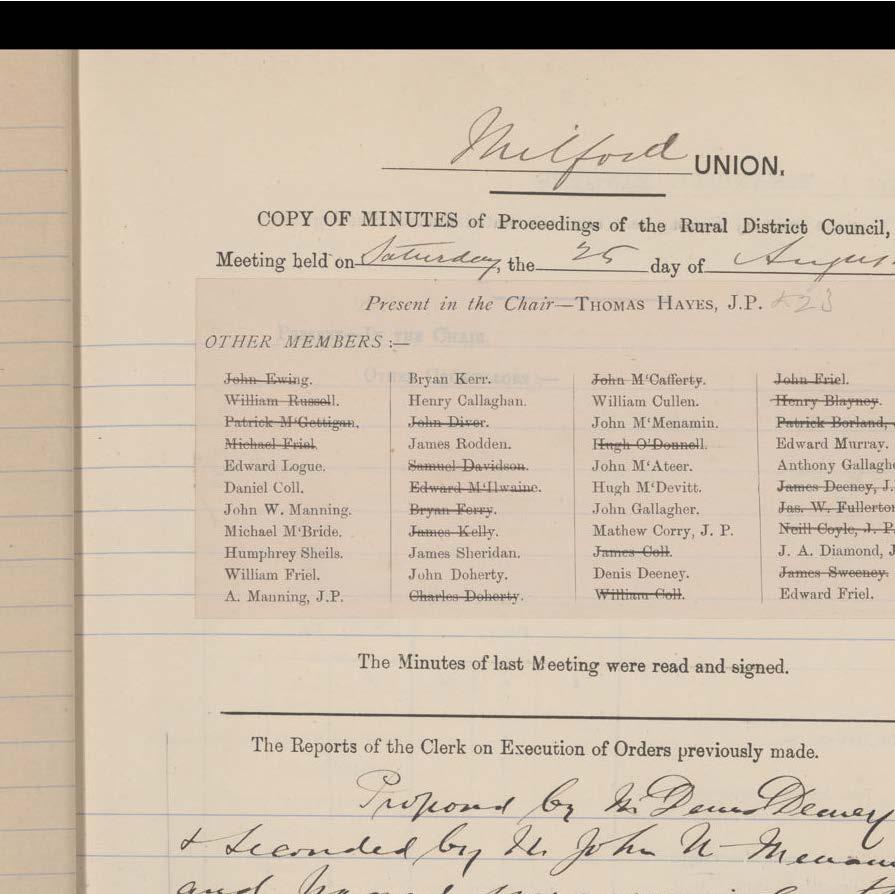 Milford UNION.
COPY OF MINUTES of Proceedings of the Rural District Council,
Meeting held on Saturday, the 25 day of August
Present in the Chair—THOMAS HAYES, J.P. & 23
OTHER MEMBERS :—
John Ewing. Bryan Kerr. John M'Cafferty. John Friel.
William Russell. Henry Callaghan. William Cullen. Henry Blayney.
Patrick M'Gettigan. John Diver. John M'Menamin. Patrick Borland,
Michael Friel. James Rodden. Hugh O'Donnell. Edward Murray.
Edward Logue. Samuel Davidson. John M'Ateer. Anthony Gallaghe
Daniel Coll. Edward M'Ilwaine. Hugh M'Devitt. James Deeney, J.
John W. Manning. Bryan Ferry. John Gallagher. Jas. W. Fullerton
Michael M'Bride. James Kelly. Mathew Corry, J. P. Neill Coyle, J. P.
Humphrey Sheils. James Sheridan. James Coll. J. A. Diamond, J
William Friel. John Doherty. Denis Deeney. James Sweeney.
A. Manning, J.P. Charles Doherty. William Coll. Edward Friel.
The Minutes of last Meeting were read and signed.
The Reports of the Clerk on Execution of Orders previously made.
Proposed by Mr Denis Deeney
& seconded by Mr John
and